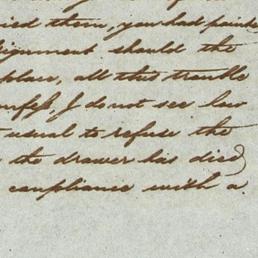 them, you had paid
should the
place, all this trouble
I do not see how
usual to refuse the
the drawer has died
compliance with a